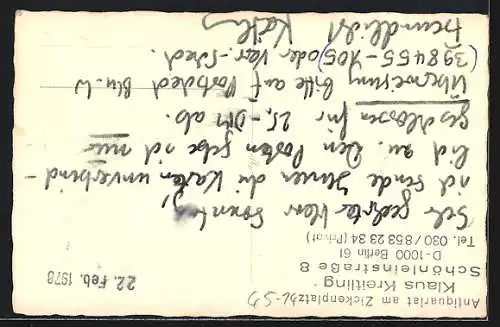 Antiquariat am Zickenplatz
Klaus Kreitling
Schönleinstraße 8
D-1000 Berlin 61
Tel. 030 / 853 23 34 (Privat)
22. Feb. 1978
Sehr geehrter Herr
ich sende Ihnen die Karten unverbind-
lich zu. Den Posten gebe ich nur
geschlossen für 25,-DM ab.
Überweisung bitte auf Postscheck Bln. W
(398455-105) oder Verr.-Scheck.
Freundlichst